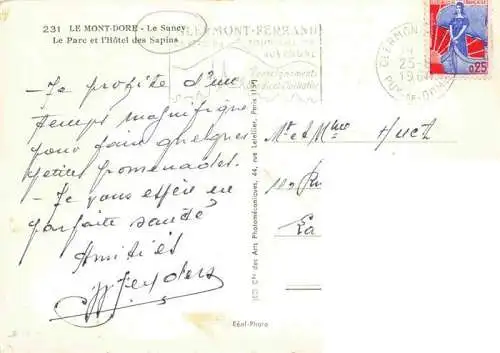 231 LE MONT-DORE - Le Sancy
Le Parc et l'Hôtel des Sapins
CLERMONT-FERRAND
AUVERGNE
Renseignements
CLERMONT
25-
196
PUY-DE-DOME
0,25
- Je profite d'un
temps magnifique
pour faire quelques
petites promenades.
- Je vous espère en
parfaite santé
Amitiés
Mr et Mme Huet
La
Cie des Arts Photomécaniques, 44, rue Letellier, Paris
Réel-Photo